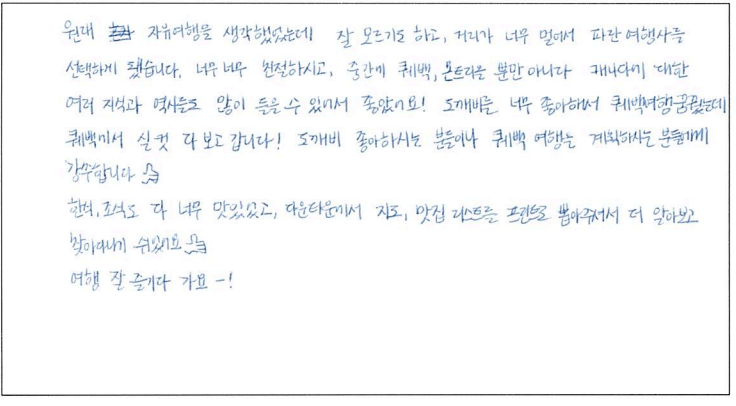 원래 자유여행을 생각했었는데 잘 모르기도 하고, 거리가 너무 멀어서 파란여행사를
선택하게 됐습니다. 너무너무 친절하시고, 중간에 퀘백, 몬트리올 뿐만 아니라 캐나다에 대한
여러 지식과 역사들도 많이 들을 수 있어서 좋았어요! 도깨비를 너무 좋아해서 퀘백여행 꿈꿨는데
퀘백에서 실컷 다 보고 갑니다! 도깨비 좋아하시는 분들이나 퀘백 여행는 계획하시는 분들에게
강추합니다
한식, 조식도 다 너무 맛있었고, 다운타운에서 지도, 맛집 리스트를 프린트로 뽑아주셔서 더 알아보고
찾아다니기 쉬웠어요
여행 잘 즐기다 가요-!